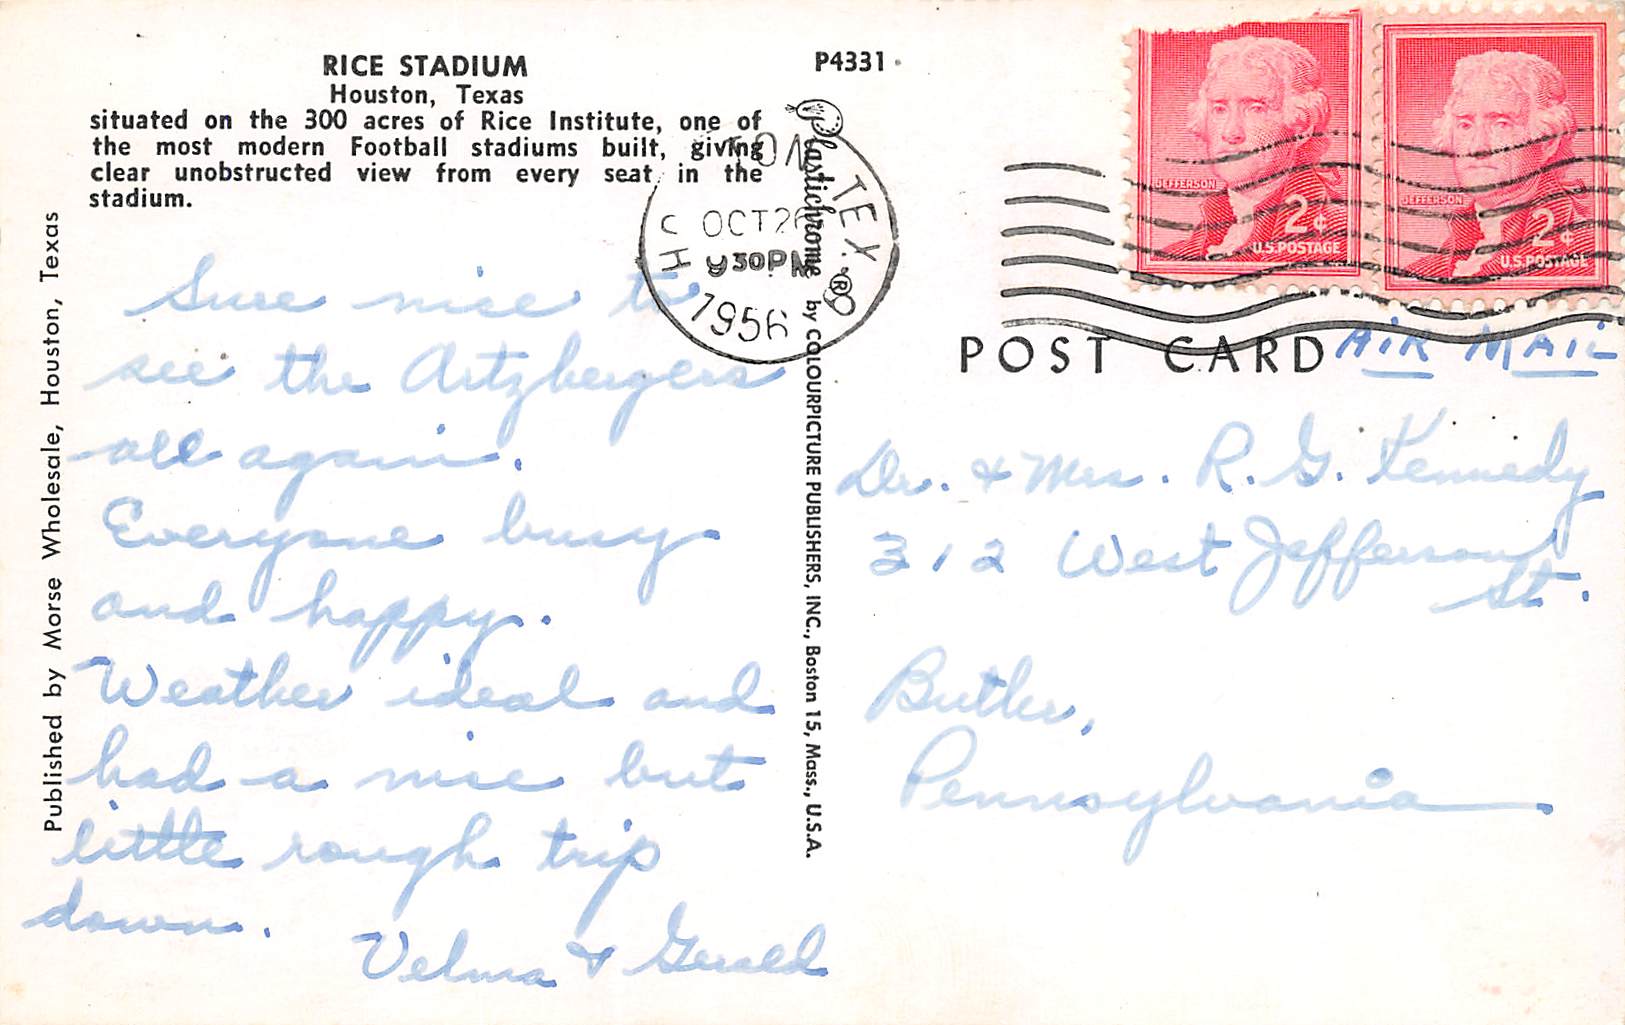 RICE STADIUM
Houston, Texas
situated on the 300 acres of Rice Institute, one of
the most modern Football stadiums built, giving
clear unobstructed view from every seat in the
stadium.
P4331
Published by Morse Wholesale, Houston, Texas
Sure nice to
see the Artzbergers
all again.
Everyone busy
and happy.
Weather ideal and
had a nice but
little rough trip
down.
Velma & Gerald
HOUSTON TEX.
OCT 26
30PM
1956
Plastichrome ® by COLOURPICTURE PUBLISHERS, INC., Boston 15, Mass., U.S.A.
JEFFERSON
2¢
U.S. POSTAGE
JEFFERSON
2¢
U.S. POSTAGE
POST CARD
AIR MAIL
Dr. & Mrs. R. G. Kennedy
312 West Jefferson
St.
Butler,
Pennsylvania